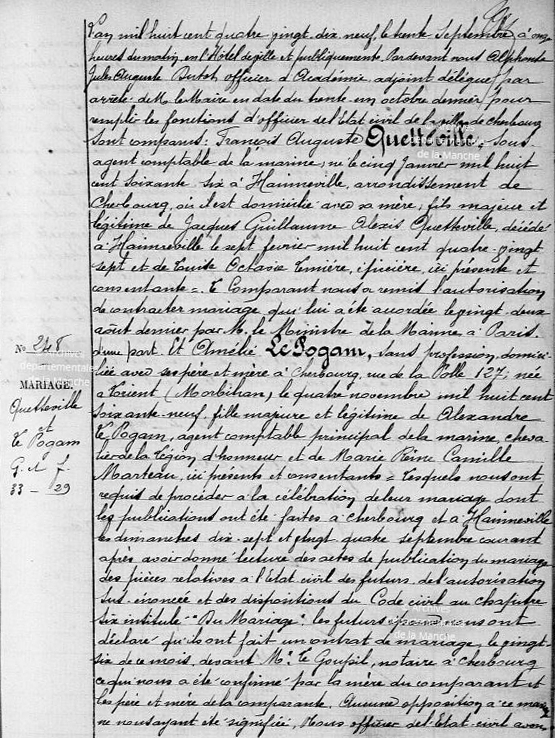 L'an mil huit cent quatre-vingt-dix-neuf, le trente Septembre, à onze
heures du matin, en l'Hôtel de ville et publiquement. Pardevant nous Alphonse
Jules Auguste officier d'Académie, adjoint délégué par
arrêté de M. le Maire en date du trente-un octobre dernier, pour
remplir les fonctions d'officier de l'Etat civil de la ville de Cherbourg
sont comparus: François Auguste Quetteville, sous-
agent comptable de la marine, né le cinq Janvier mil huit
cent soixante-six à Hainneville, arrondissement de
Cherbourg, où il est domicilié avec sa mère; fils majeur et
légitime de Jacques Guillaume Alexis Quetteville, décédé
à Hainneville le sept février mil huit cent quatre-vingt
sept et de Octavie épicière, ici présente et
consentante = Le Comparant nous a remis l'autorisation
de contracter mariage qui lui a été accordée le vingt-deux
août dernier par M. le Ministre de la Marine à Paris.
d'une part. Et Amélie Le Pogam, sans profession, domici-
liée avec ses père et mère à Cherbourg, rue de la Polle 127; née
à Lorient (Morbihan), le quatre novembre mil huit cent
soixante-neuf, fille majeure et légitime de Alexandre
Le Pogam, agent comptable principal de la marine, cheva-
lier de la Légion d'honneur et de Marie Reine Camille
Marteau, ici présents et consentants = Lesquels nous ont
requis de procéder à la célébration de leur mariage dont
les publications ont été faites à Cherbourg et à Hainneville
les dimanches dix-sept et vingt-quatre septembre courant
après avoir donné lecture des actes de publication du mariage
des pièces relatives à l'état civil des futurs, de l'autorisation
sus-énoncée et des dispositions du Code civil au chapitre
six intitulé "Du Mariage". les futurs époux nous ont
déclaré qu'ils ont fait un contrat de mariage, le vingt-
six de ce mois, devant Me Le Goupil, notaire à Cherbourg
ce qui nous a été confirmé par la mère du comparant et
les père et mère de la comparante. Aucune opposition à ce mariage
ne nous ayant été signifiée, Nous officier de l'Etat-civil avons
No 248
MARIAGE.
Quetteville
et
Le Pogam
G. et f.
33 – 29
Archives
départementales
de la Manche
Archives
départementales
de la Manche